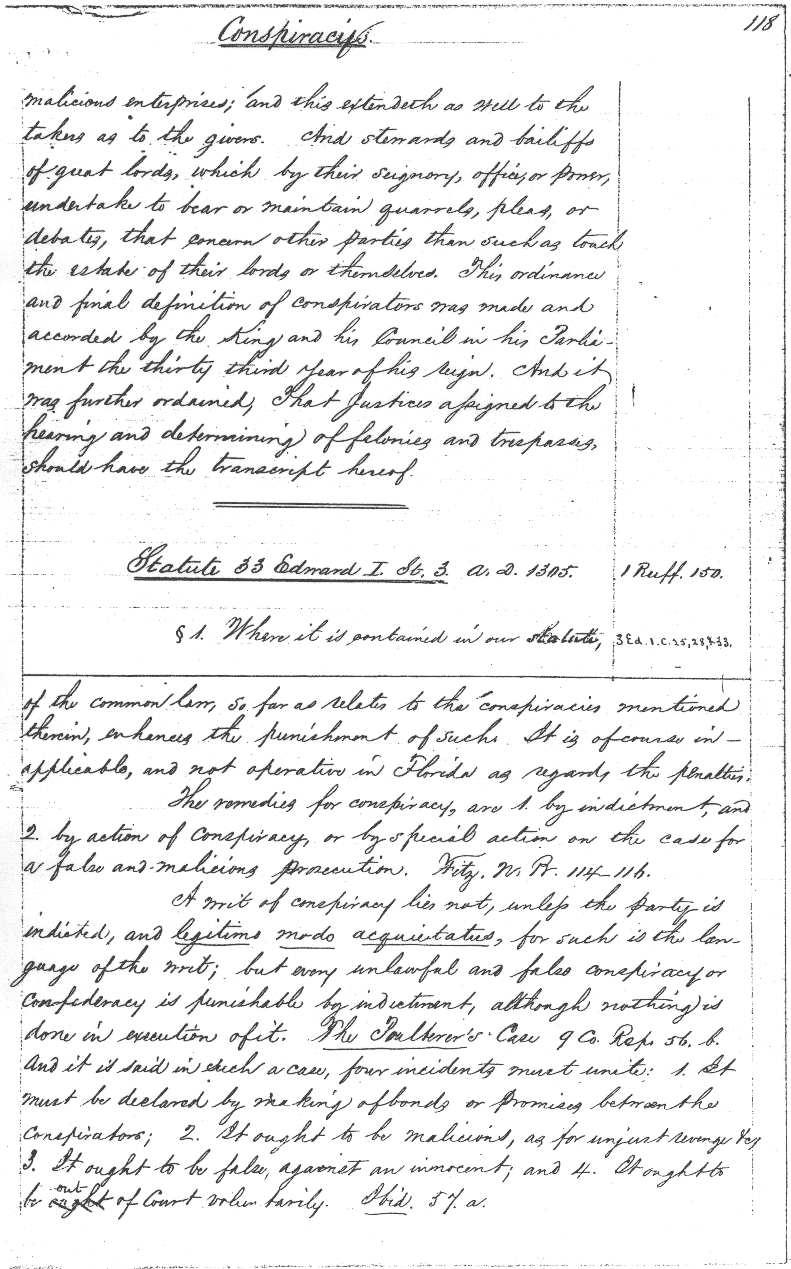 118
Conspiracys.
malicious enterprises; and this extendeth as well to the
takers as to the givers. And stewards and bailiffs
of great lords, which by their seignory, office, or power,
undertake to bear or maintain quarrels, pleas, or
debates, that concern other parties than such as touch
the estate of their lords or themselves. This ordinance
and final definition of conspirators was made and
accorded by the King and his Council in his Parlia-
ment the thirty third year of his reign. And it
was further ordained, That Justices assigned to the
hearing and determining of felonies and trespasses,
should have the transcript hereof.
Statute 33 Edward I. St. 3. A. D. 1305. 1 Ruff. 150.
§ 1. Where it is contained in our statute, 3 Ed. 1. C. 25, 28, & 33.
of the common law, so far as relates to the conspiracies mentioned
therein, enhances the punishment of such. It is of course in-
applicable, and not operative in Florida as regards the penalties.
The remedies for conspiracy, are 1. by indictment, and
2. by action of Conspiracy, or by special action on the case for
a false and malicious prosecution. Fitz. N. B. 114-116.
A writ of conspiracy lies not, unless the party is
indicted, and legitimo modo acquietatus, for such is the lan-
guage of the writ; but every unlawful and false conspiracy or
confederacy is punishable by indictment, although nothing is
done in execution of it. The Poulterer's Case 9 Co. Rep. 56. b.
And it is said in such a case, four incidents must unite: 1. It
must be declared by making of bonds or promises between the
conspirators; 2. It ought to be malicious, as for unjust revenge &c;
3. It ought to be false, against an innocent; and 4. It ought to
be out of Court voluntarily. Ibid. 57. a.